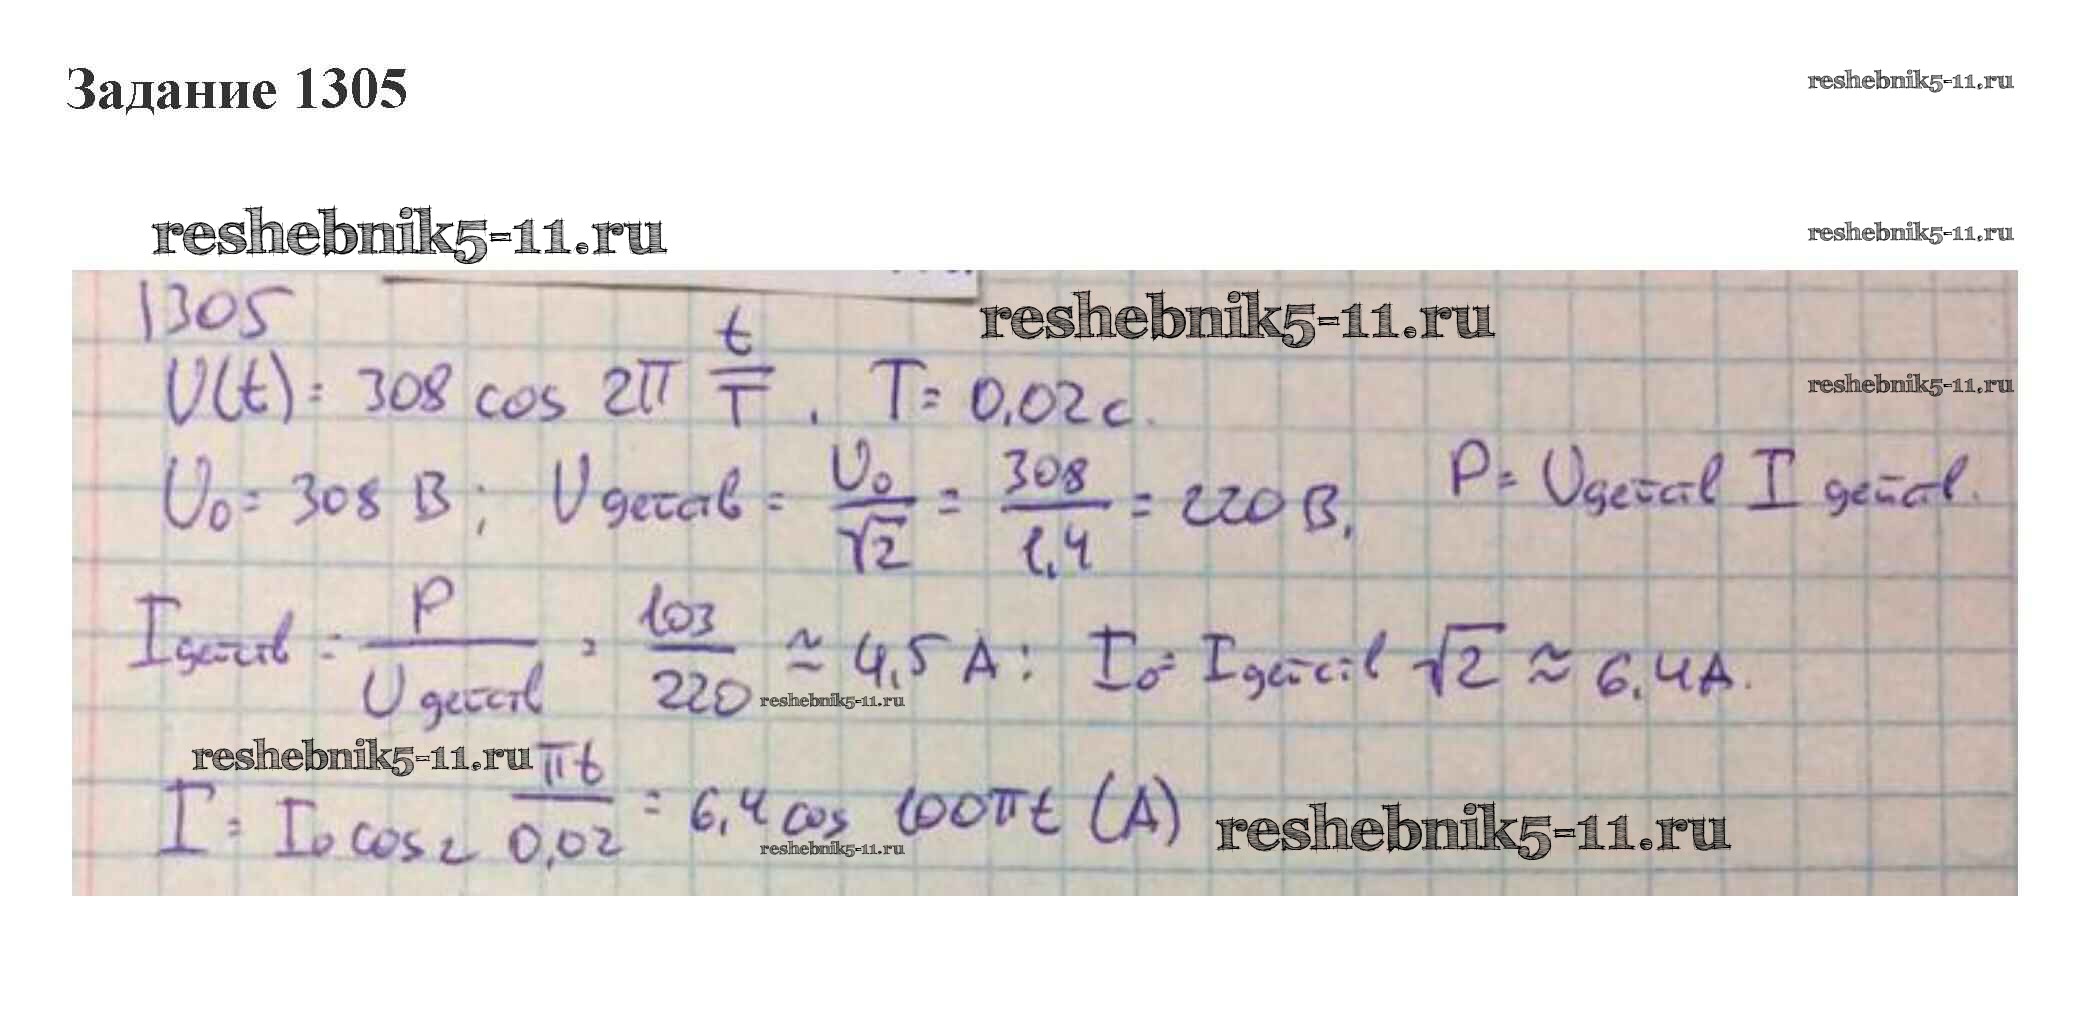 Задание 1305
reshebnik5-11.ru
reshebnik5-11.ru
reshebnik5-11.ru
1305
reshebnik5-11.ru
U(t) = 308 cos 2π t/T . T = 0,02 с.
reshebnik5-11.ru
U₀ = 308 В ; U действ = U₀/√2 = 308/1,4 = 220 В, P = U действ I действ.
I действ = P/U действ = 103/220 ≈ 4,5 А : I₀ = I действ √2 ≈ 6,4 А.
reshebnik5-11.ru
reshebnik5-11.ru
I = I₀ cos 2 πt/0,02 = 6,4 cos 100πt (А)
reshebnik5-11.ru
reshebnik5-11.ru